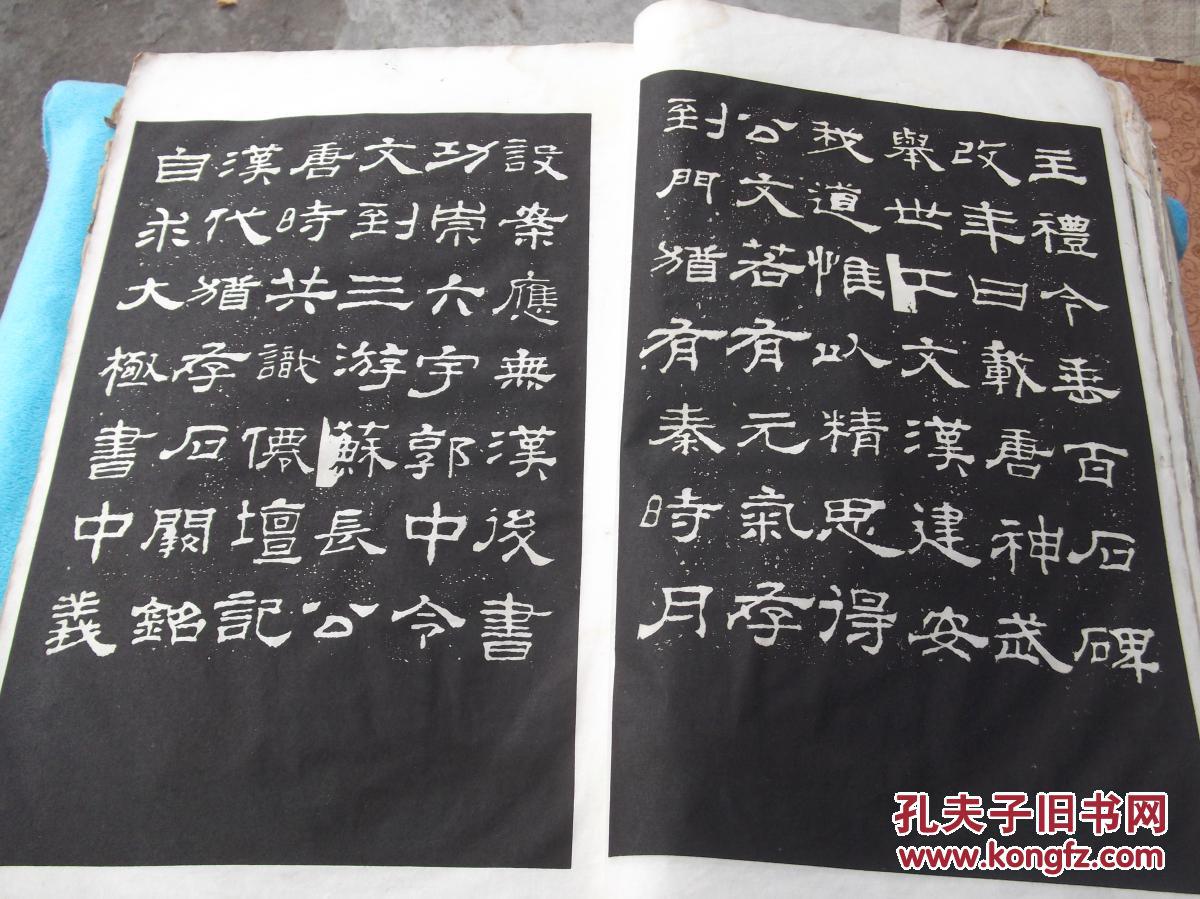 主禮今垂百石碑
改年曰載唐神武
舉世工文漢建安
我道惟以精思得
公文若有元氣存
到門猶有秦時月
設案應無漢後書
功崇六宇郭中令
文到三游蘇長公
唐時共識僊壇記
漢代猶存石闕銘
自求大極書中義
孔夫子旧书网
www.kongfz.com